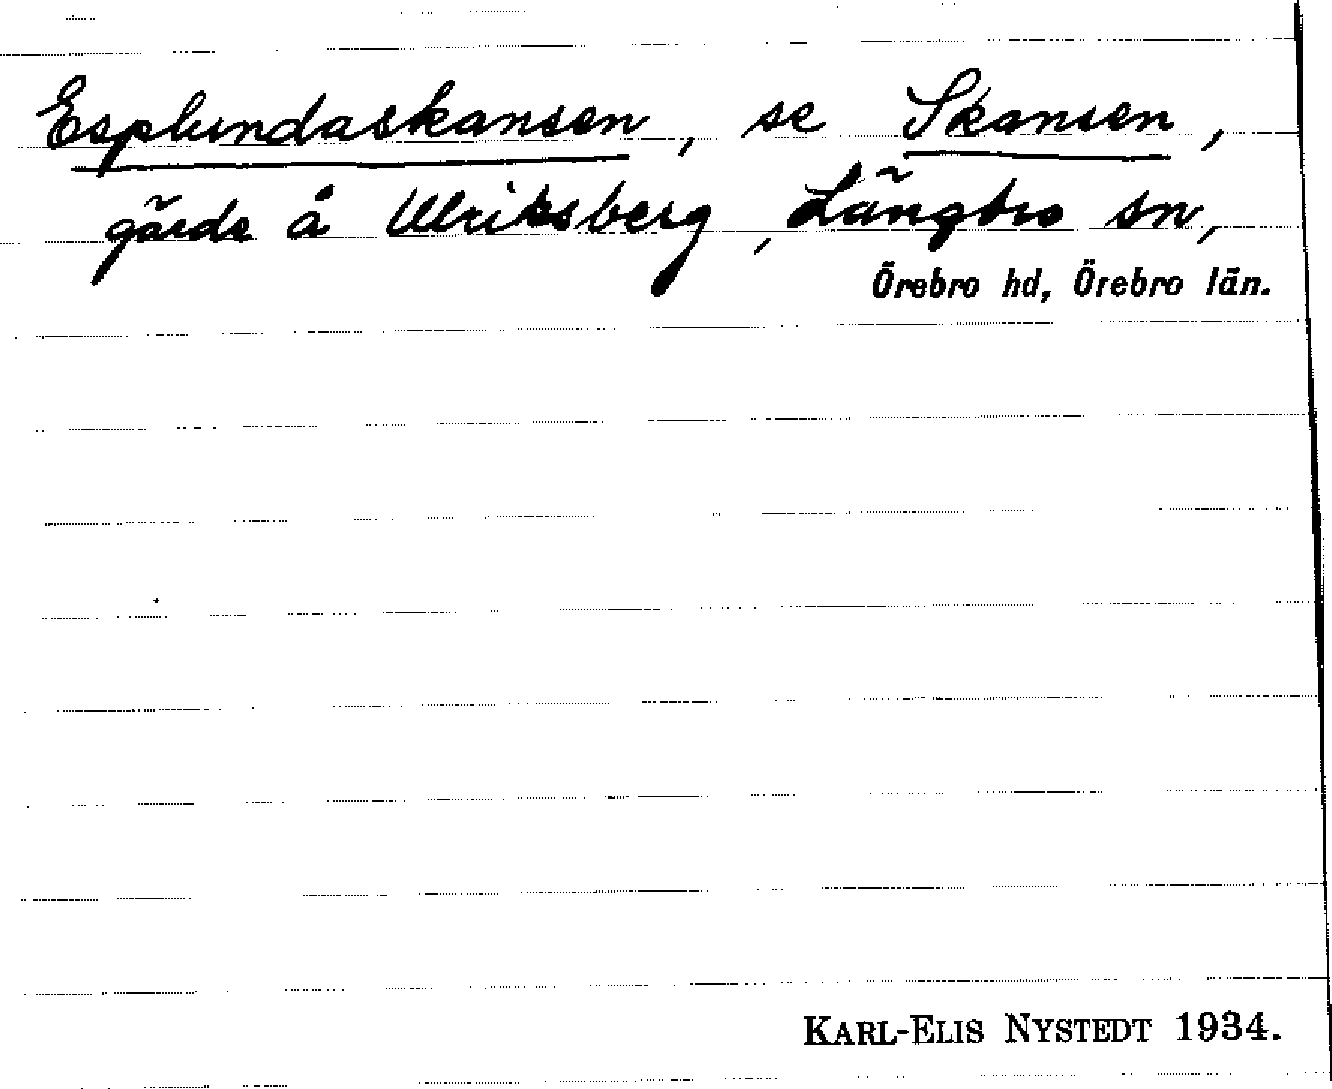 Esplundaskansen, se Skansen,
gärde å Ulriksberg, Längbro sn,
Örebro hd, Örebro län.
KARL-ELIS NYSTEDT 1934.